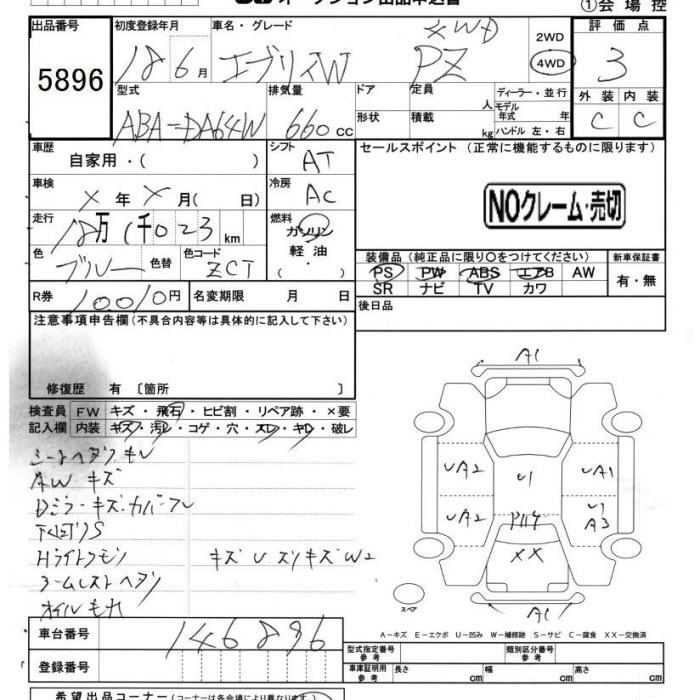 オークション出品申込書
①会場控
出品番号 初度登録年月 車名・グレード 4WD 2WD 評価点
5896 18 6月 エブリィW PZ 4WD 3
型式 排気量 ドア 定員 人 ディーラー・並行 外装 内装
ABA-DA64W 660cc 形状 積載 kg モデル年式 年 C C
ハンドル 左・右
車歴 自家用・( ) シフト AT セールスポイント (正常に機能するものに限ります)
車検 × 年 × 月( 日) 冷房 AC
NOクレーム・売切
走行 18万1千023km 燃料 ガソリン
軽油
・( )
色 ブルー 色替 色コード ZCT
装備品 (純正品に限り○をつけてください) 新車保証書
PS PW ABS エアB AW 有・無
SR ナビ TV カワ
R券 10,010円 名変期限 月 日 後日品
注意事項申告欄 (不具合内容等は具体的に記入して下さい)
修復歴 有 〔箇所 〕
検査員記入欄 FW キズ・飛石・ヒビ割・リペア跡・×要
内装 キズ・汚レ・コゲ・穴・スレ・キレ・破レ
シートヘタリキレ
AWキズ
Dミラーキズ・カバーワレ
下回りS
Hライトクモリ キズUスリキズW2
アームレストヘタリ
オイルモレ
A1
UA2 U1 UA1
UA2 P114 U1 A3
XX
A1
スペア
A-キズ E-エクボ U-凹み W-補修跡 S-サビ C-腐食 XX-交換済
車台番号 146896
型式指定番号 参考 類別区分番号 参考
登録番号 車庫証明用 参考 長さ cm 幅 cm 高さ cm
希望出品コーナー (コーナーは各会場により異なります。)